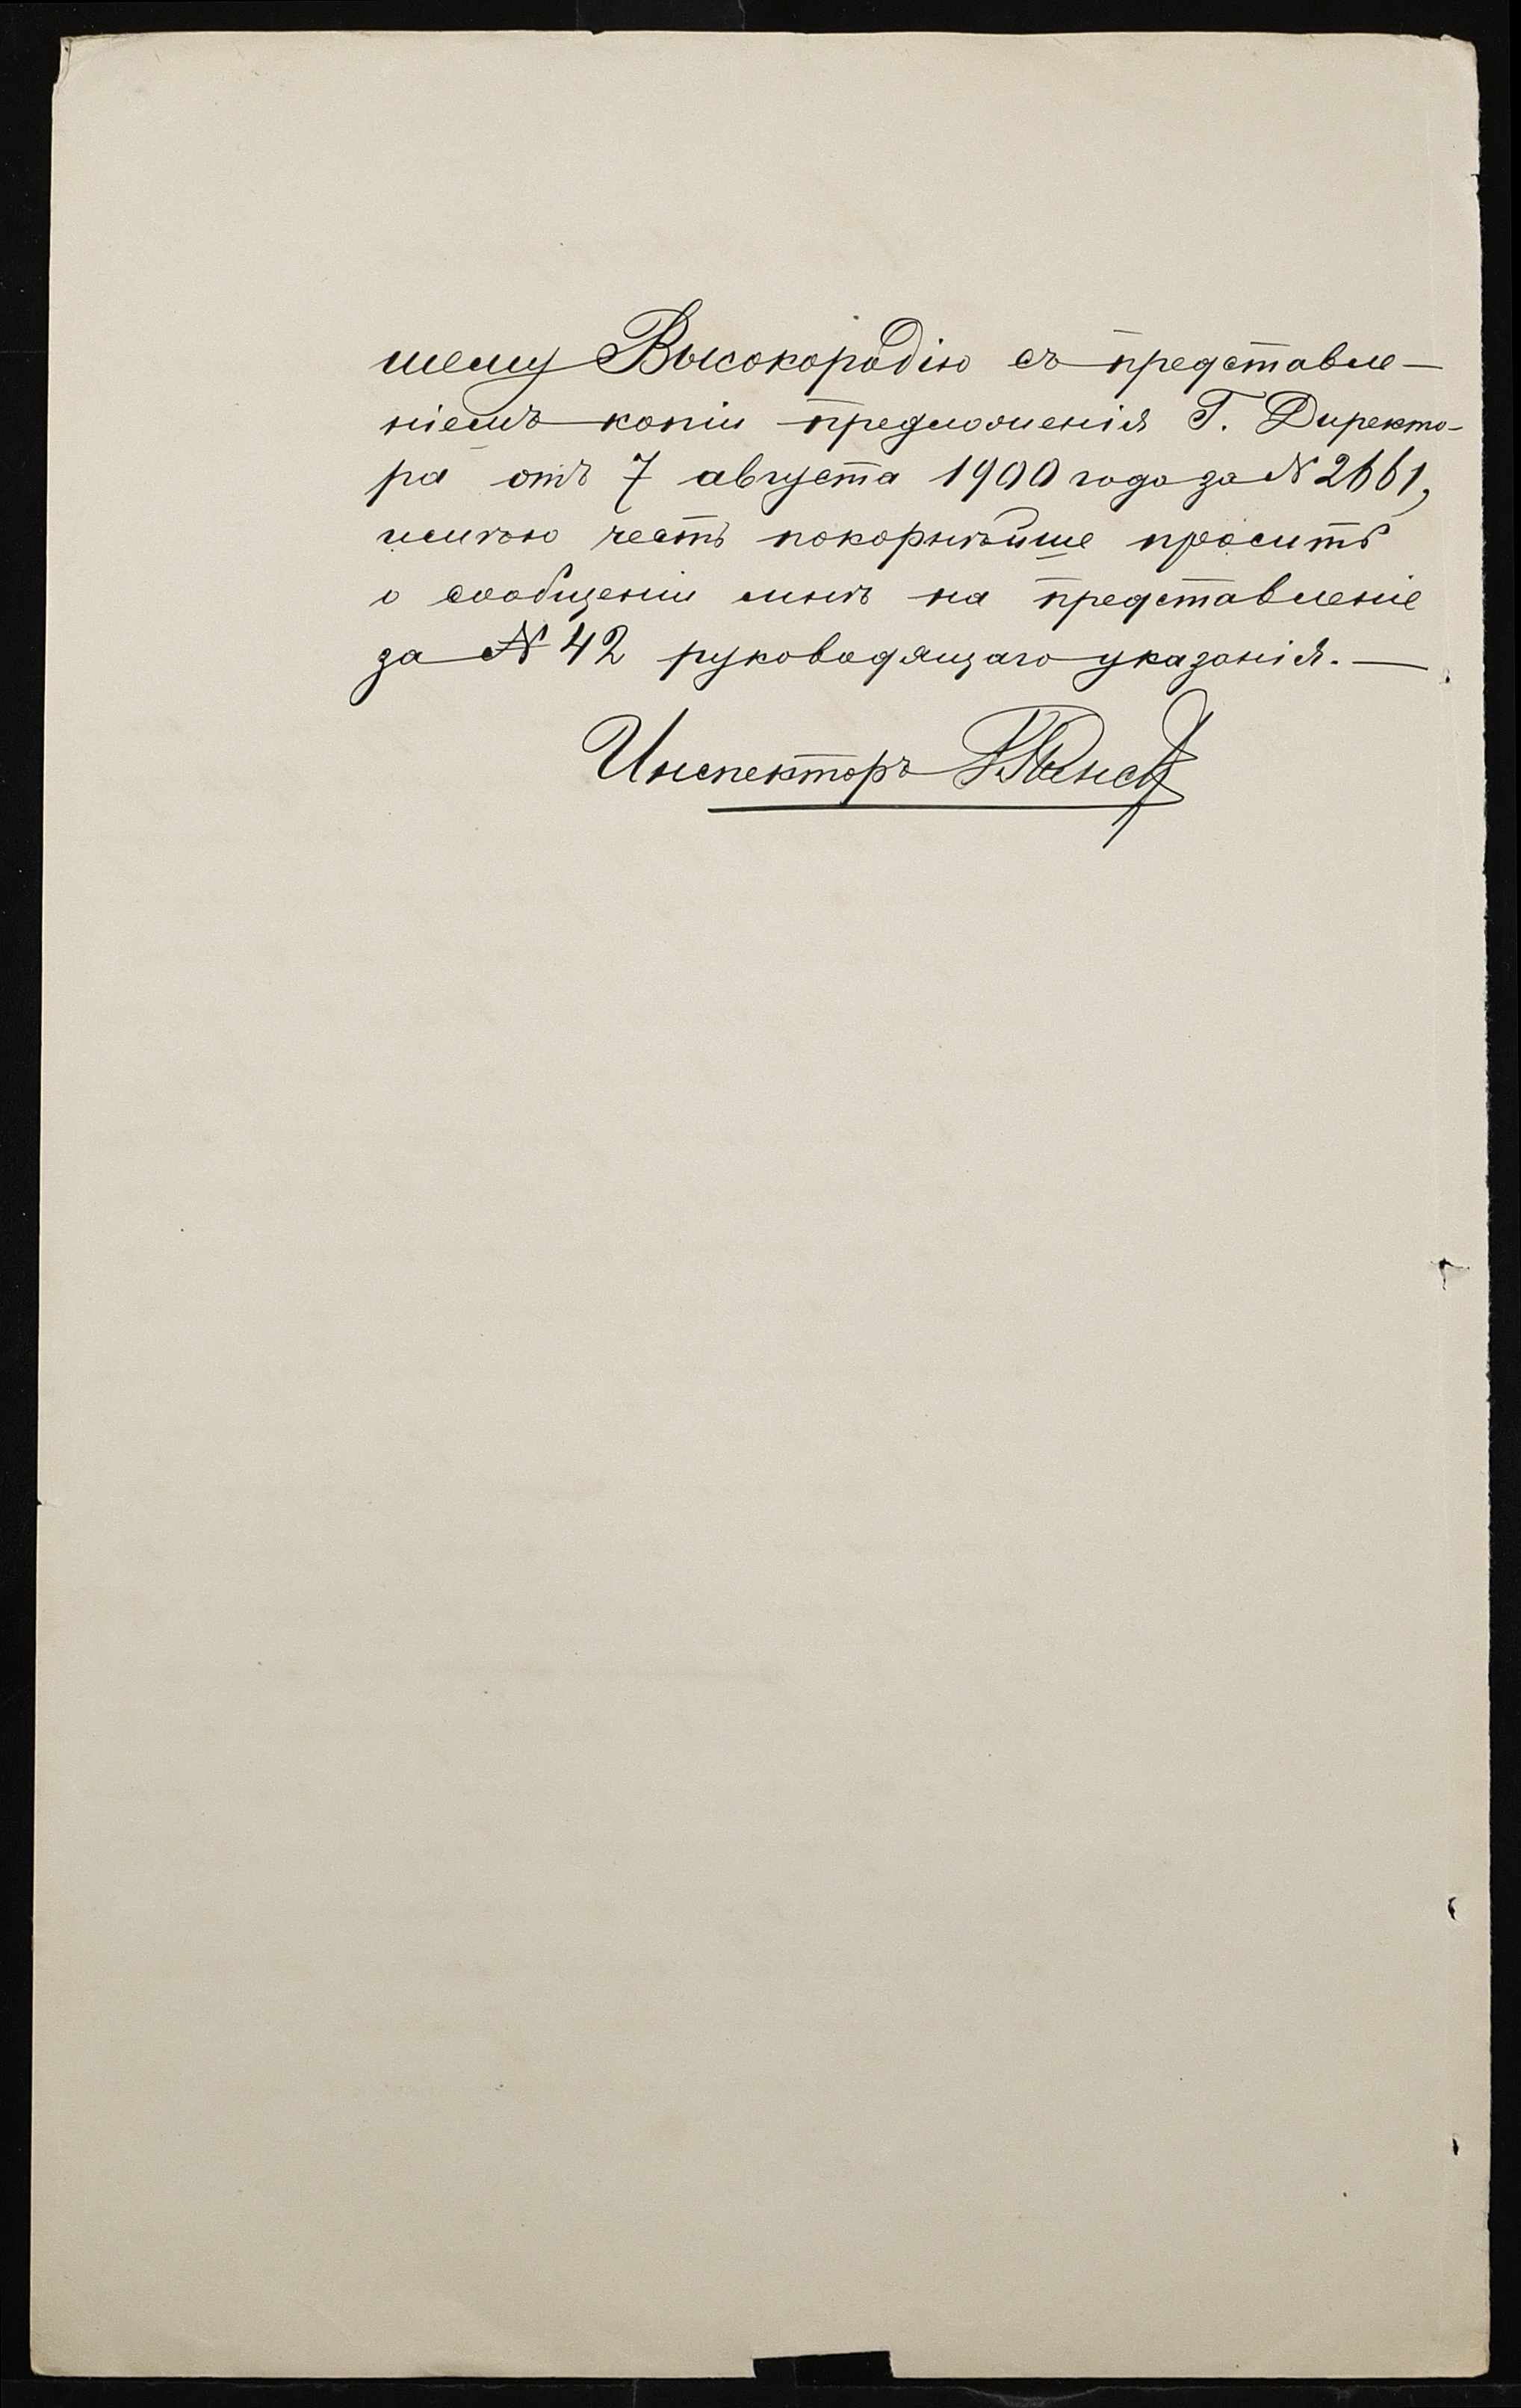 шему Высокородію съ представле-
ніемъ копіи предложенія Г. Директо-
ра отъ 7 августа 1900 года за № 2661,
имѣю честь покорнѣйше просить
о сообщеніи мнѣ на представленіе
за № 42 руководящаго указанія. —
Инспекторъ